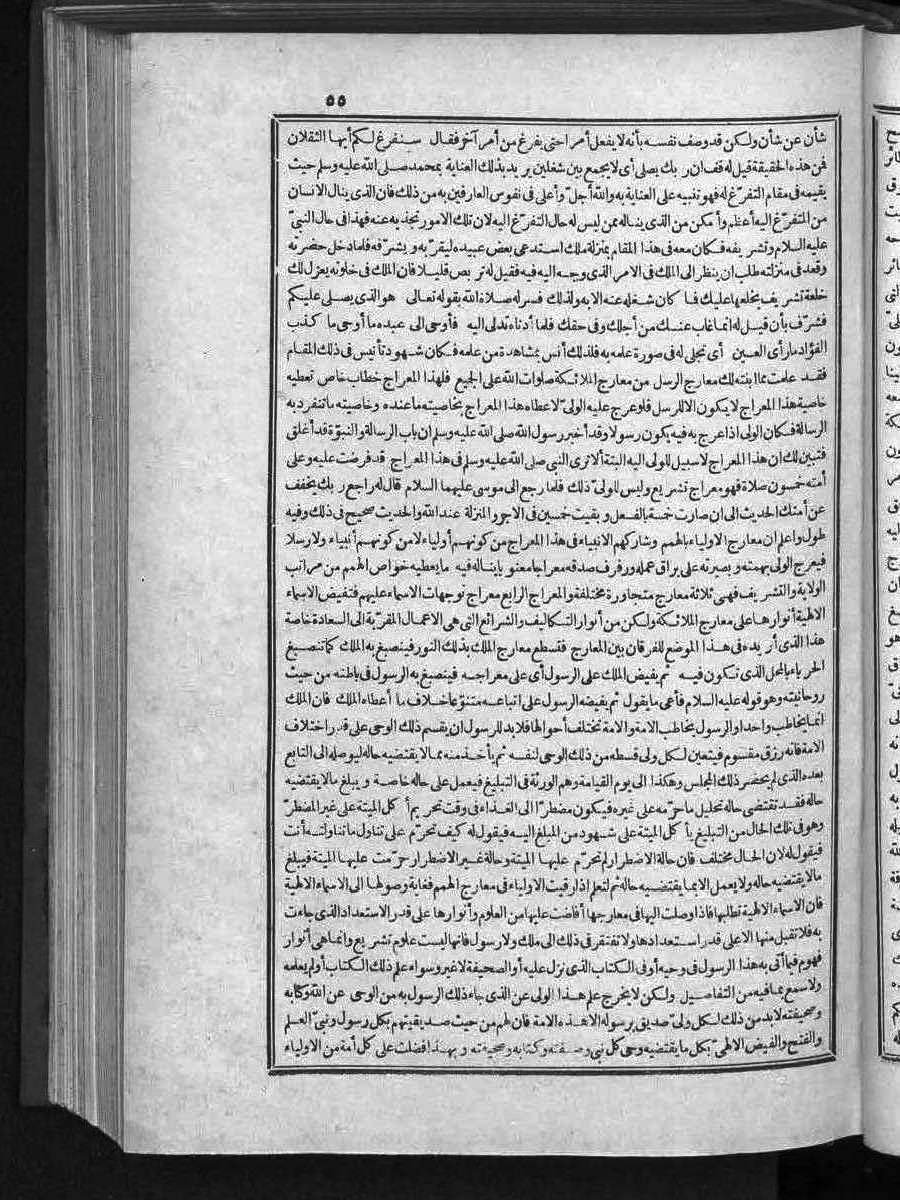 ٥٥
شأن عن شأن ولكن قد وصف نفسه بأنه لا يفعل أمرا حتى يفرغ من أمر آخر فقال سنفرغ لكم أيها الثقلان
فمن هذه الحقيقة قيل له قف ان ربك يصلى أى لا يجمع بين شغلين يريد بذلك العناية بمحمد صلى الله عليه وسلم حيث
يقيمه فى مقام التفرّغ له فهو تنبيه على العناية به والله أجلّ وأعلى فى نفوس العارفين به من ذلك فان الذى ينال الانسان
من المتفرّغ اليه أعظم وأمكن من الذى يناله ممن ليس له حال التفرّغ اليه لان تلك الامور تجذبه عنه فهذا فى حال النبىّ
عليه السلام وتشريفه فكان معه فى هذا المقام بمنزلة ملك استدعى بعض عبيده ليقرّبه ويشرّفه فلما دخل حضرته
وقعد فى منزلته طلب ان ينظر الى الملك فى الامر الذى وجه اليه فيه فقيل له تربص قليلا فان الملك فى خلوته يعزل لك
خلعة تشريف يخلعها عليك فما كان شغله عنه الا به ولذلك فسر له صلاة الله بقوله تعالى هو الذى يصلى عليكم
فشرّف بأن قيل له انما غاب عنك من أجلك وفى حقك فلما أدناه تدلى اليه فأوحى الى عبده ما أوحى ما كذب
الفؤاد ما رأى العين أى تجلى له فى صورة علمه به فلذلك أنس بمشاهدة من علمه فكان شهود تأنيس فى ذلك المقام
فقد علمت مما ابنته لك معارج الرسل من معارج الملائكة صلوات الله على الجميع فلهذا المعراج خطاب خاص تعطيه
خاصية هذا المعراج لا يكون الا للرسل فلو عرج عليه الولىّ لاعطاه هذا المعراج بخاصيته ما عنده وخاصيته ما تنفرد به
الرسالة فكان الولى اذا عرج به فيه يكون رسولا وقد أخبر رسول الله صلى الله عليه وسلم ان باب الرسالة والنبوّة قد أغلق
فتبين لك ان هذا المعراج لا سبيل للولى اليه البتة ألا ترى النبى صلى الله عليه وسلم فى هذا المعراج قد فرضت عليه وعلى
أمته خمسون صلاة فهو معراج تشريع وليس للولىّ ذلك فلما رجع الى موسى عليهما السلام قال له راجع ربك يخفف
عن أمتك الحديث الى ان صارت خمسة بالفعل وبقيت خمسين فى الاجور المنزلة عند الله والحديث صحيح فى ذلك وفيه
طول واعلم ان معارج الاولياء بالهمم وشاركهم الانبياء فى هذا المعراج من كونهم أولياء لا من كونهم أنبياء ولا رسلا
فيعرج الولى بهمته وبصيرته على براق عمله ورفرف صدقه معراجا معنويا يناله فيه ما يعطيه خواص الهمم من مراتب
الولاية والتشريف فهى ثلاثة معارج متجاورة مختلفة والمعراج الرابع معراج توجهات الاسماء عليهم فتفيض الاسماء
الالهية أنوارها على معارج الملائكة ولكن من أنوار التكاليف والشرائع التى هى الاعمال المقرّبة الى السعادة خاصة
هذا الذى أريده فى هذا الموضع للفرقان بين المعارج فتسطع معارج الملك بذلك النور فينصبغ به الملك كما تنصبغ
الحرباء بالمحل الذى تكون فيه ثم يفيض الملك على الرسول أى على معراجه فينصبغ به الرسول فى باطنه من حيث
روحانيته وهو قوله عليه السلام فأعى ما يقول ثم يفيضه الرسول على اتباعه متنوّعا خلاف ما أعطاه الملك فان الملك
انما يخاطب واحدا والرسول يخاطب الامة والامة تختلف أحوالها فلا بد للرسول ان يقسم ذلك الوحى على قدر اختلاف
الامة فانه رزق مقسوم فيتعين لكل ولى قسطه من ذلك الوحى لنفسه ثم يأخذ منه مما لا يقتضيه حاله ليوصله الى التابع
بعده الذى لم يحضر ذلك المجلس وهكذا الى يوم القيامة وهم الورثة فى التبليغ فيعمل على حاله خاصة ويبلغ ما لا يقتضيه
حاله فقد تقتضى حاله تحليل ما حرّمه على غيره فيكون مضطرّا الى الغذاء فى وقت تحريم أكل الميتة على غير المضطرّ
وهو فى تلك الحال من التبليغ يأكل الميتة على شهود من المبلغ اليه فيقول له كيف تحرّم على تناول ما تناولته أنت
فيقول له لان الحال مختلف فان حالة الاضطرار لم تحرّم عليها الميتة وحالة غير الاضطرار حرّمت عليها الميتة فيبلغ
ما لا يقتضيه حاله ولا يعمل الا بما يقتضيه حاله ثم لتعلم اذا رقيت الاولياء فى معارج الهمم فغاية وصولها الى الاسماء الالهية
فان الاسماء الالهية تطلبها فاذا وصلت اليها فى معارجها أفاضت عليها من العلوم وأنوارها على قدر الاستعداد الذى جاءت
به فلا تقبل منها الا على قدر استعدادها ولا تفتقر فى ذلك الى ملك ولا رسول فانها ليست علوم تشريع وانما هى أنوار
فهوم فيما أتى به هذا الرسول فى وحيه أو فى الكتاب الذى نزل عليه أو الصحيفة لا غير وسواء علم ذلك الكتاب أو لم يعلمه
ولا سمع بما فيه من التفاصيل ولكن لا يخرج علم هذا الولى عن الذى جاء ذلك الرسول به من الوحى عن الله وكتابه
وصحيفته لا بد من ذلك لكل ولىّ صديق برسوله الا هذه الامة فان لهم من حيث صديقيتهم بكل رسول ونبىّ العلم
والفتح والفيض الالهىّ بكل ما يقتضيه وحى كل نبى وصفته وكتابه وصحيفته وبهذا فضلت على كل أمة من الاولياء